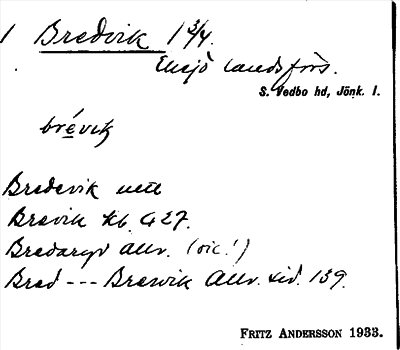 1 Bredvik 1 3/4.
Eksjö landsförs.
S. Vedbo hd, Jönk. l.
brévik
Bredevik uttt
Brevik Kb. G 27.
Bredaryd Allv. (sic!)
Bred --- Bresvik Allv. sid. 139.
FRITZ ANDERSSON 1933.